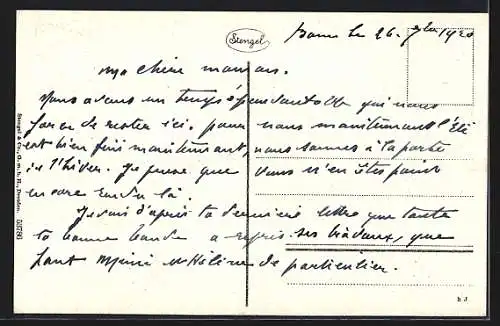 Stengel
Bonn le 26. 7bre 1920
Ma chère maman.
Nous avons un temps épouvantable qui nous
force de rester ici. pour nous maintenant l'Été
est bien fini maintenant, nous sommes à la porte
de l'hiver. Je pense que vous n'en êtes point
encore rendu là.
Je vois d'après ta dernière lettre que toute
ta bonne bande a repris ses travaux, que
font Mimi et Hélène de particulier.
Stengel & Co., G. m. b. H., Dresden. 53786